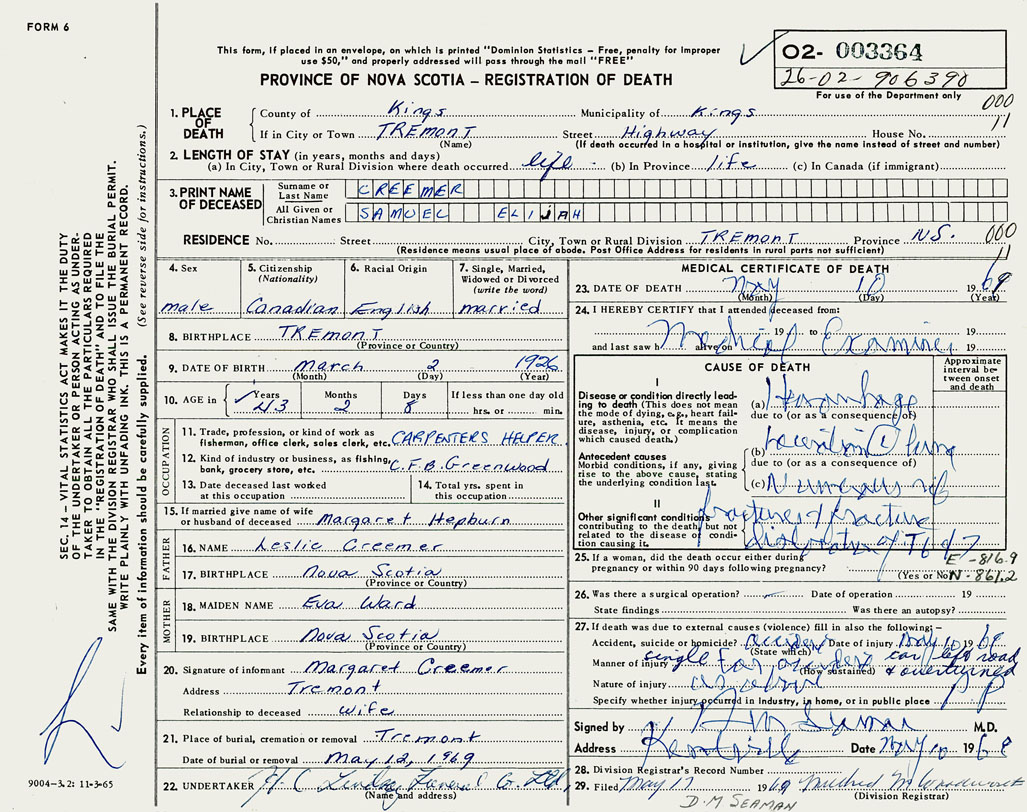 FORM 6
This form, if placed in an envelope, on which is printed "Dominion Statistics – Free, penalty for improper
use $50," and properly addressed will pass through the mail "FREE"
PROVINCE OF NOVA SCOTIA – REGISTRATION OF DEATH
O2- 003364
26-02-906390
For use of the Department only
000
11
1. PLACE OF DEATH
County of Kings Municipality of Kings
If in City or Town TREMONT Street Highway House No.
(Name) (If death occurred in a hospital or institution, give the name instead of street and number)
2. LENGTH OF STAY (in years, months and days)
(a) In City, Town or Rural Division where death occurred life (b) In Province life (c) In Canada (if immigrant)
3. PRINT NAME OF DECEASED
Surname or Last Name CREEMER
All Given or Christian Names SAMUEL ELIJAH
RESIDENCE No. Street City, Town or Rural Division TREMONT Province N.S.
000
11
(Residence means usual place of abode. Post Office Address for residents in rural parts not sufficient)
4. Sex
male
5. Citizenship
(Nationality)
Canadian
6. Racial Origin
English
7. Single, Married,
Widowed or Divorced
(write the word)
married
8. BIRTHPLACE TREMONT
(Province or Country)
9. DATE OF BIRTH March 2 1926
(Month) (Day) (Year)
10. AGE in Years Months Days If less than one day old
43 2 8 hrs. or min.
OCCUPATION
11. Trade, profession, or kind of work as
fisherman, office clerk, sales clerk, etc. CARPENTERS HELPER
12. Kind of industry or business, as fishing,
bank, grocery store, etc. C.F.B. Greenwood
13. Date deceased last worked
at this occupation
14. Total yrs. spent in
this occupation
15. If married give name of wife
or husband of deceased Margaret Hepburn
FATHER
16. NAME Leslie Creemer
17. BIRTHPLACE Nova Scotia
(Province or Country)
MOTHER
18. MAIDEN NAME Eva Ward
19. BIRTHPLACE Nova Scotia
(Province or Country)
20. Signature of informant Margaret Creemer
Address Tremont
Relationship to deceased wife
21. Place of burial, cremation or removal Tremont
Date of burial or removal May 12, 1969
22. UNDERTAKER H C Lindsay Funeral Co. Ltd.
(Name and address)
MEDICAL CERTIFICATE OF DEATH
23. DATE OF DEATH May 10 1969
(Month) (Day) (Year)
24. I HEREBY CERTIFY that I attended deceased from:
19 to 19
and last saw h alive on 19
Medical Examiner
CAUSE OF DEATH
Approximate
interval be-
tween onset
and death
I
Disease or condition directly lead-
ing to death (This does not mean
the mode of dying, e.g., heart fail-
ure, asthenia, etc. It means the
disease, injury, or complication
which caused death.)
(a) Hemorrhage
due to (or as a consequence of)
Antecedent causes
Morbid conditions, if any, giving
rise to the above cause, stating
the underlying condition last.
(b) Laceration L lung
due to (or as a consequence of)
(c) Numerous rib
II
Other significant conditions
contributing to the death, but not
related to the disease or condi-
tion causing it.
fractures & fracture
dislocation of T6 & 7
25. If a woman, did the death occur either during
pregnancy or within 90 days following pregnancy?
(Yes or No)
E-816.9
N-861.2
26. Was there a surgical operation? Date of operation 19
State findings Was there an autopsy?
27. If death was due to external causes (violence) fill in also the following:–
Accident, suicide or homicide? accident Date of injury May 10 1969
(State which)
Manner of injury single car accident car left road
(How sustained) & overturned
Nature of injury as above
Specify whether injury occurred in industry, in home, or in public place
Signed by M.D.
Address Kentville Date May 10 1969
28. Division Registrar's Record Number
29. Filed May 17 1969
(Division Registrar)
D. M SEAMAN
SEC. 14 – VITAL STATISTICS ACT MAKES IT THE DUTY
OF THE UNDERTAKER OR PERSON ACTING AS UNDER-
TAKER TO OBTAIN ALL THE PARTICULARS REQUIRED
IN THE "REGISTRATION OF DEATH" AND TO FILE THE
SAME WITH THE DIVISION REGISTRAR WHO SHALL ISSUE THE BURIAL PERMIT.
WRITE PLAINLY WITH UNFADING INK. THIS IS A PERMANENT RECORD.
Every item of information should be carefully supplied. (See reverse side for instructions.)
9004-3.2: 11-3-65